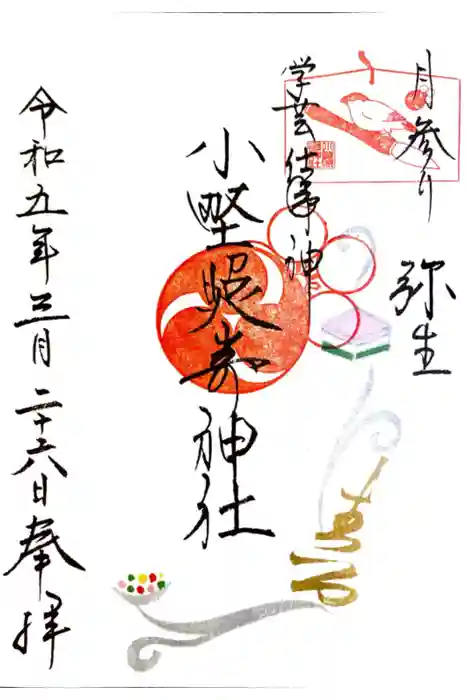 月参り
弥生
学芸仕事神
小野照崎神社
令和五年三月二十六日奉拝